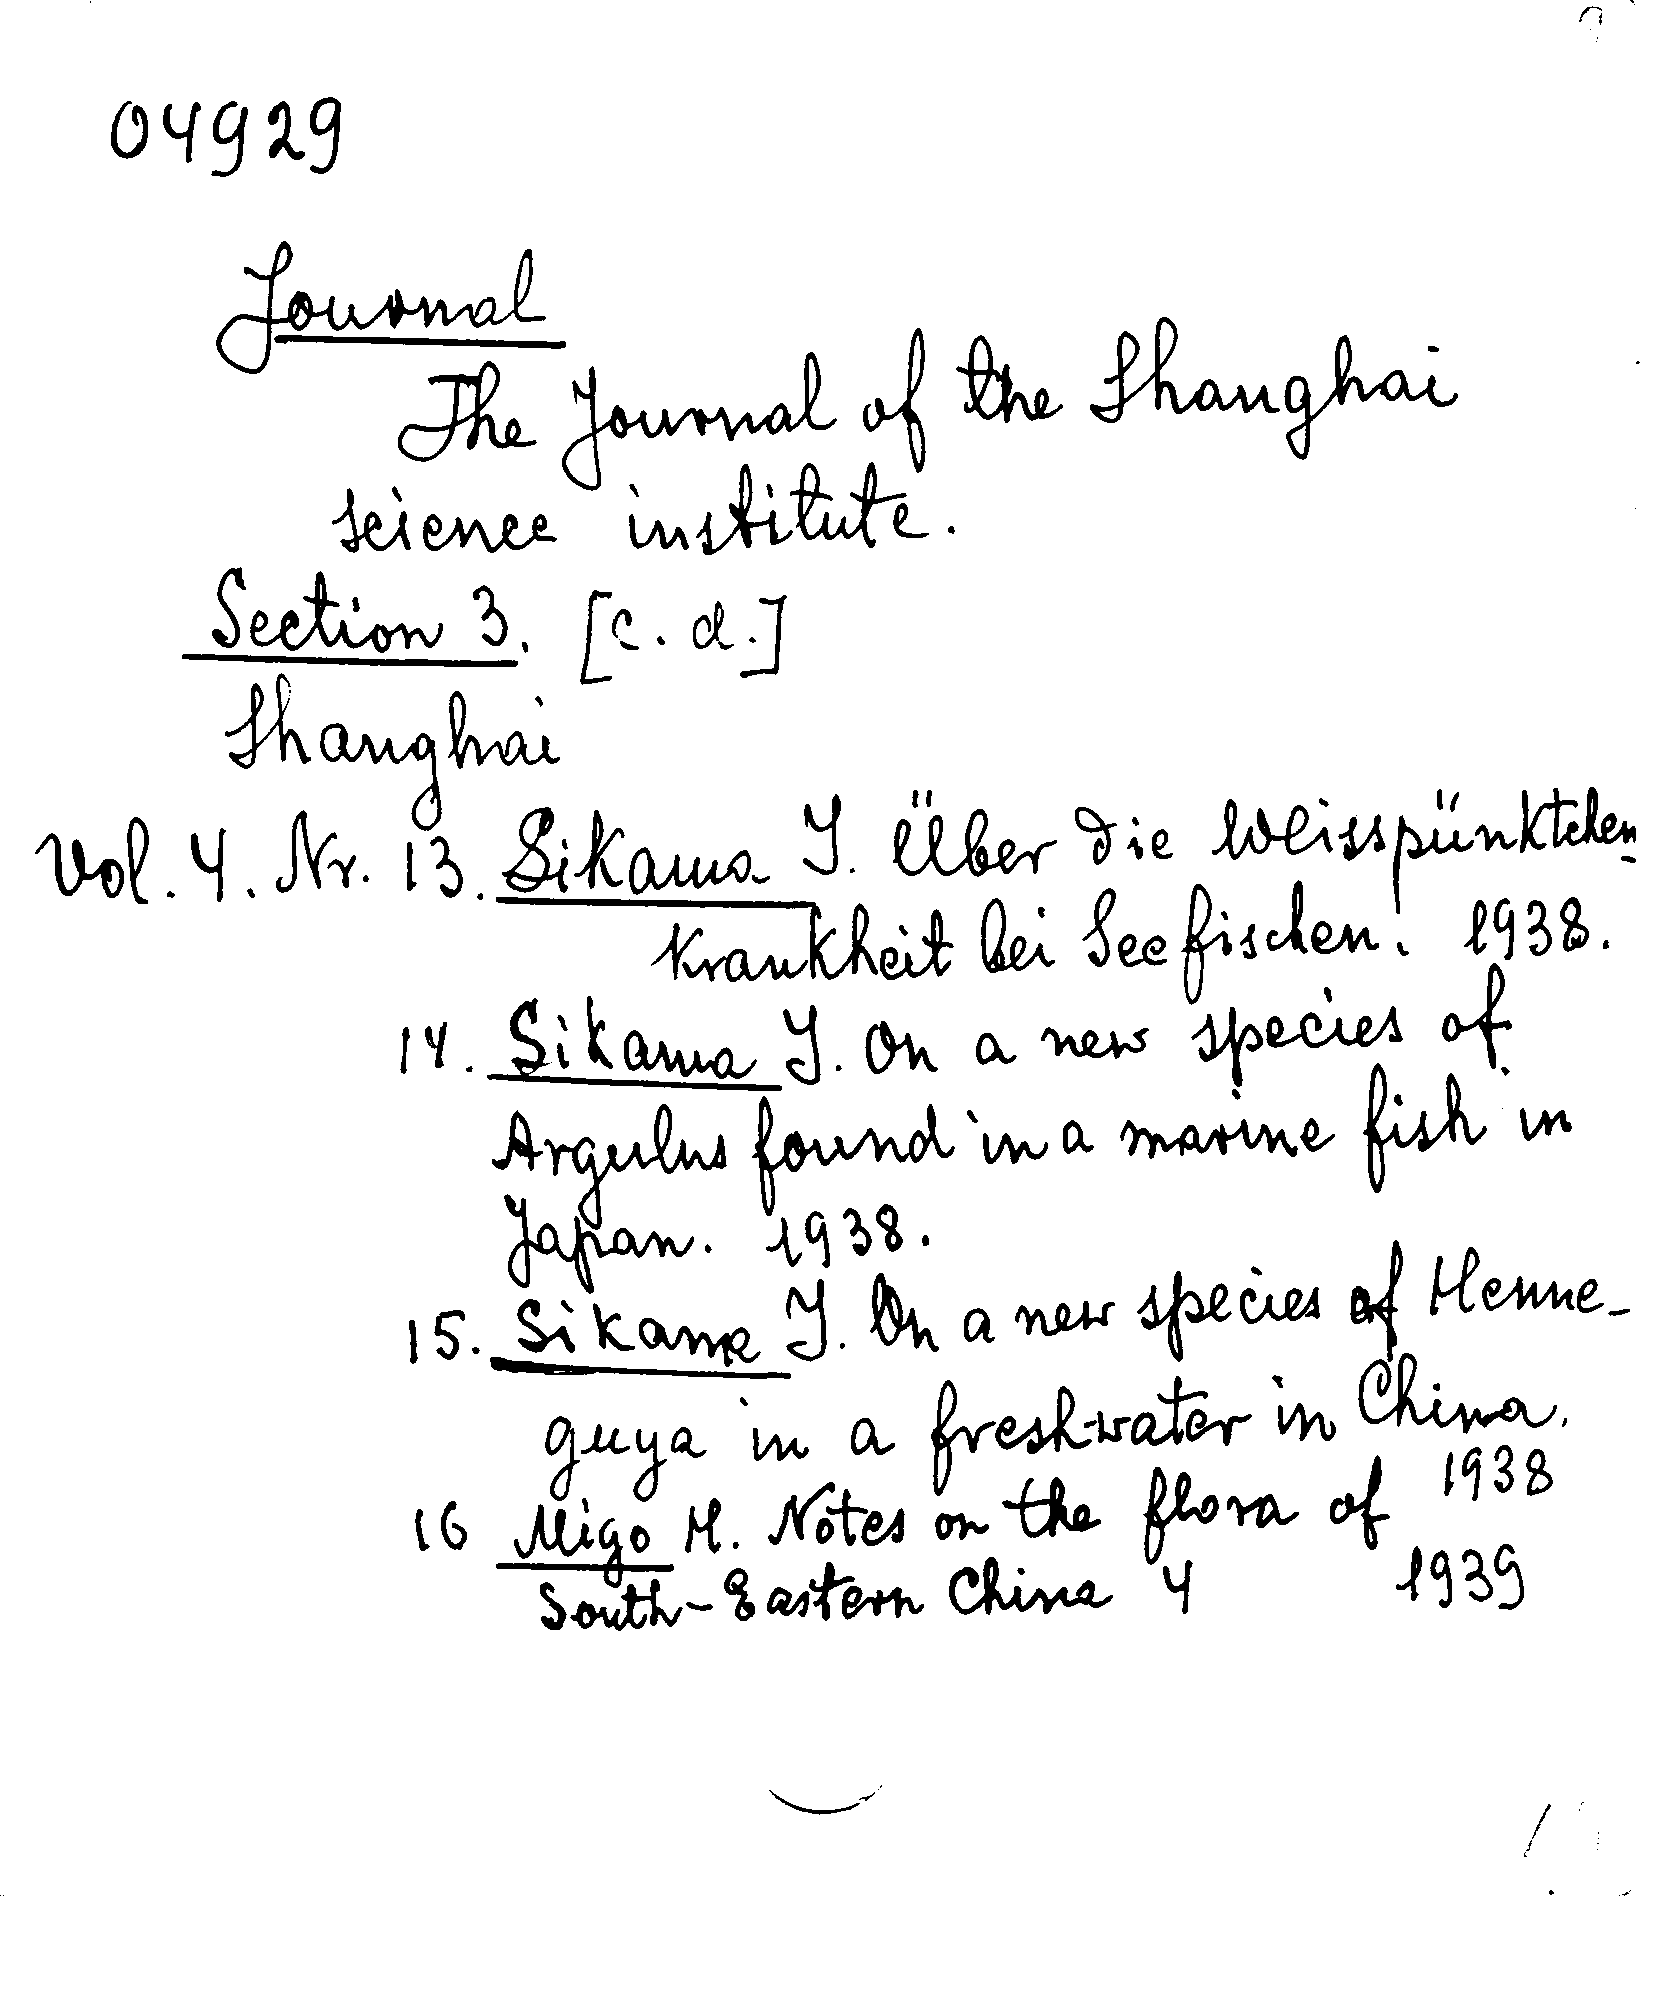 04929
Journal
The Journal of the Shanghai
science institute.
Section 3. [c. d.]
Shanghai
Vol. 4. Nr. 13. Sikama Y. Über die Weisspünktchen-
krankheit bei Seefischen. 1938.
14. Sikama Y. On a new species of
Argulus found in a marine fish in
Japan. 1938.
15. Sikama Y. On a new species of Henne-
guya in a freshwater in China.
1938
16 Migo H. Notes on the flora of
South-Eastern China 4 1939